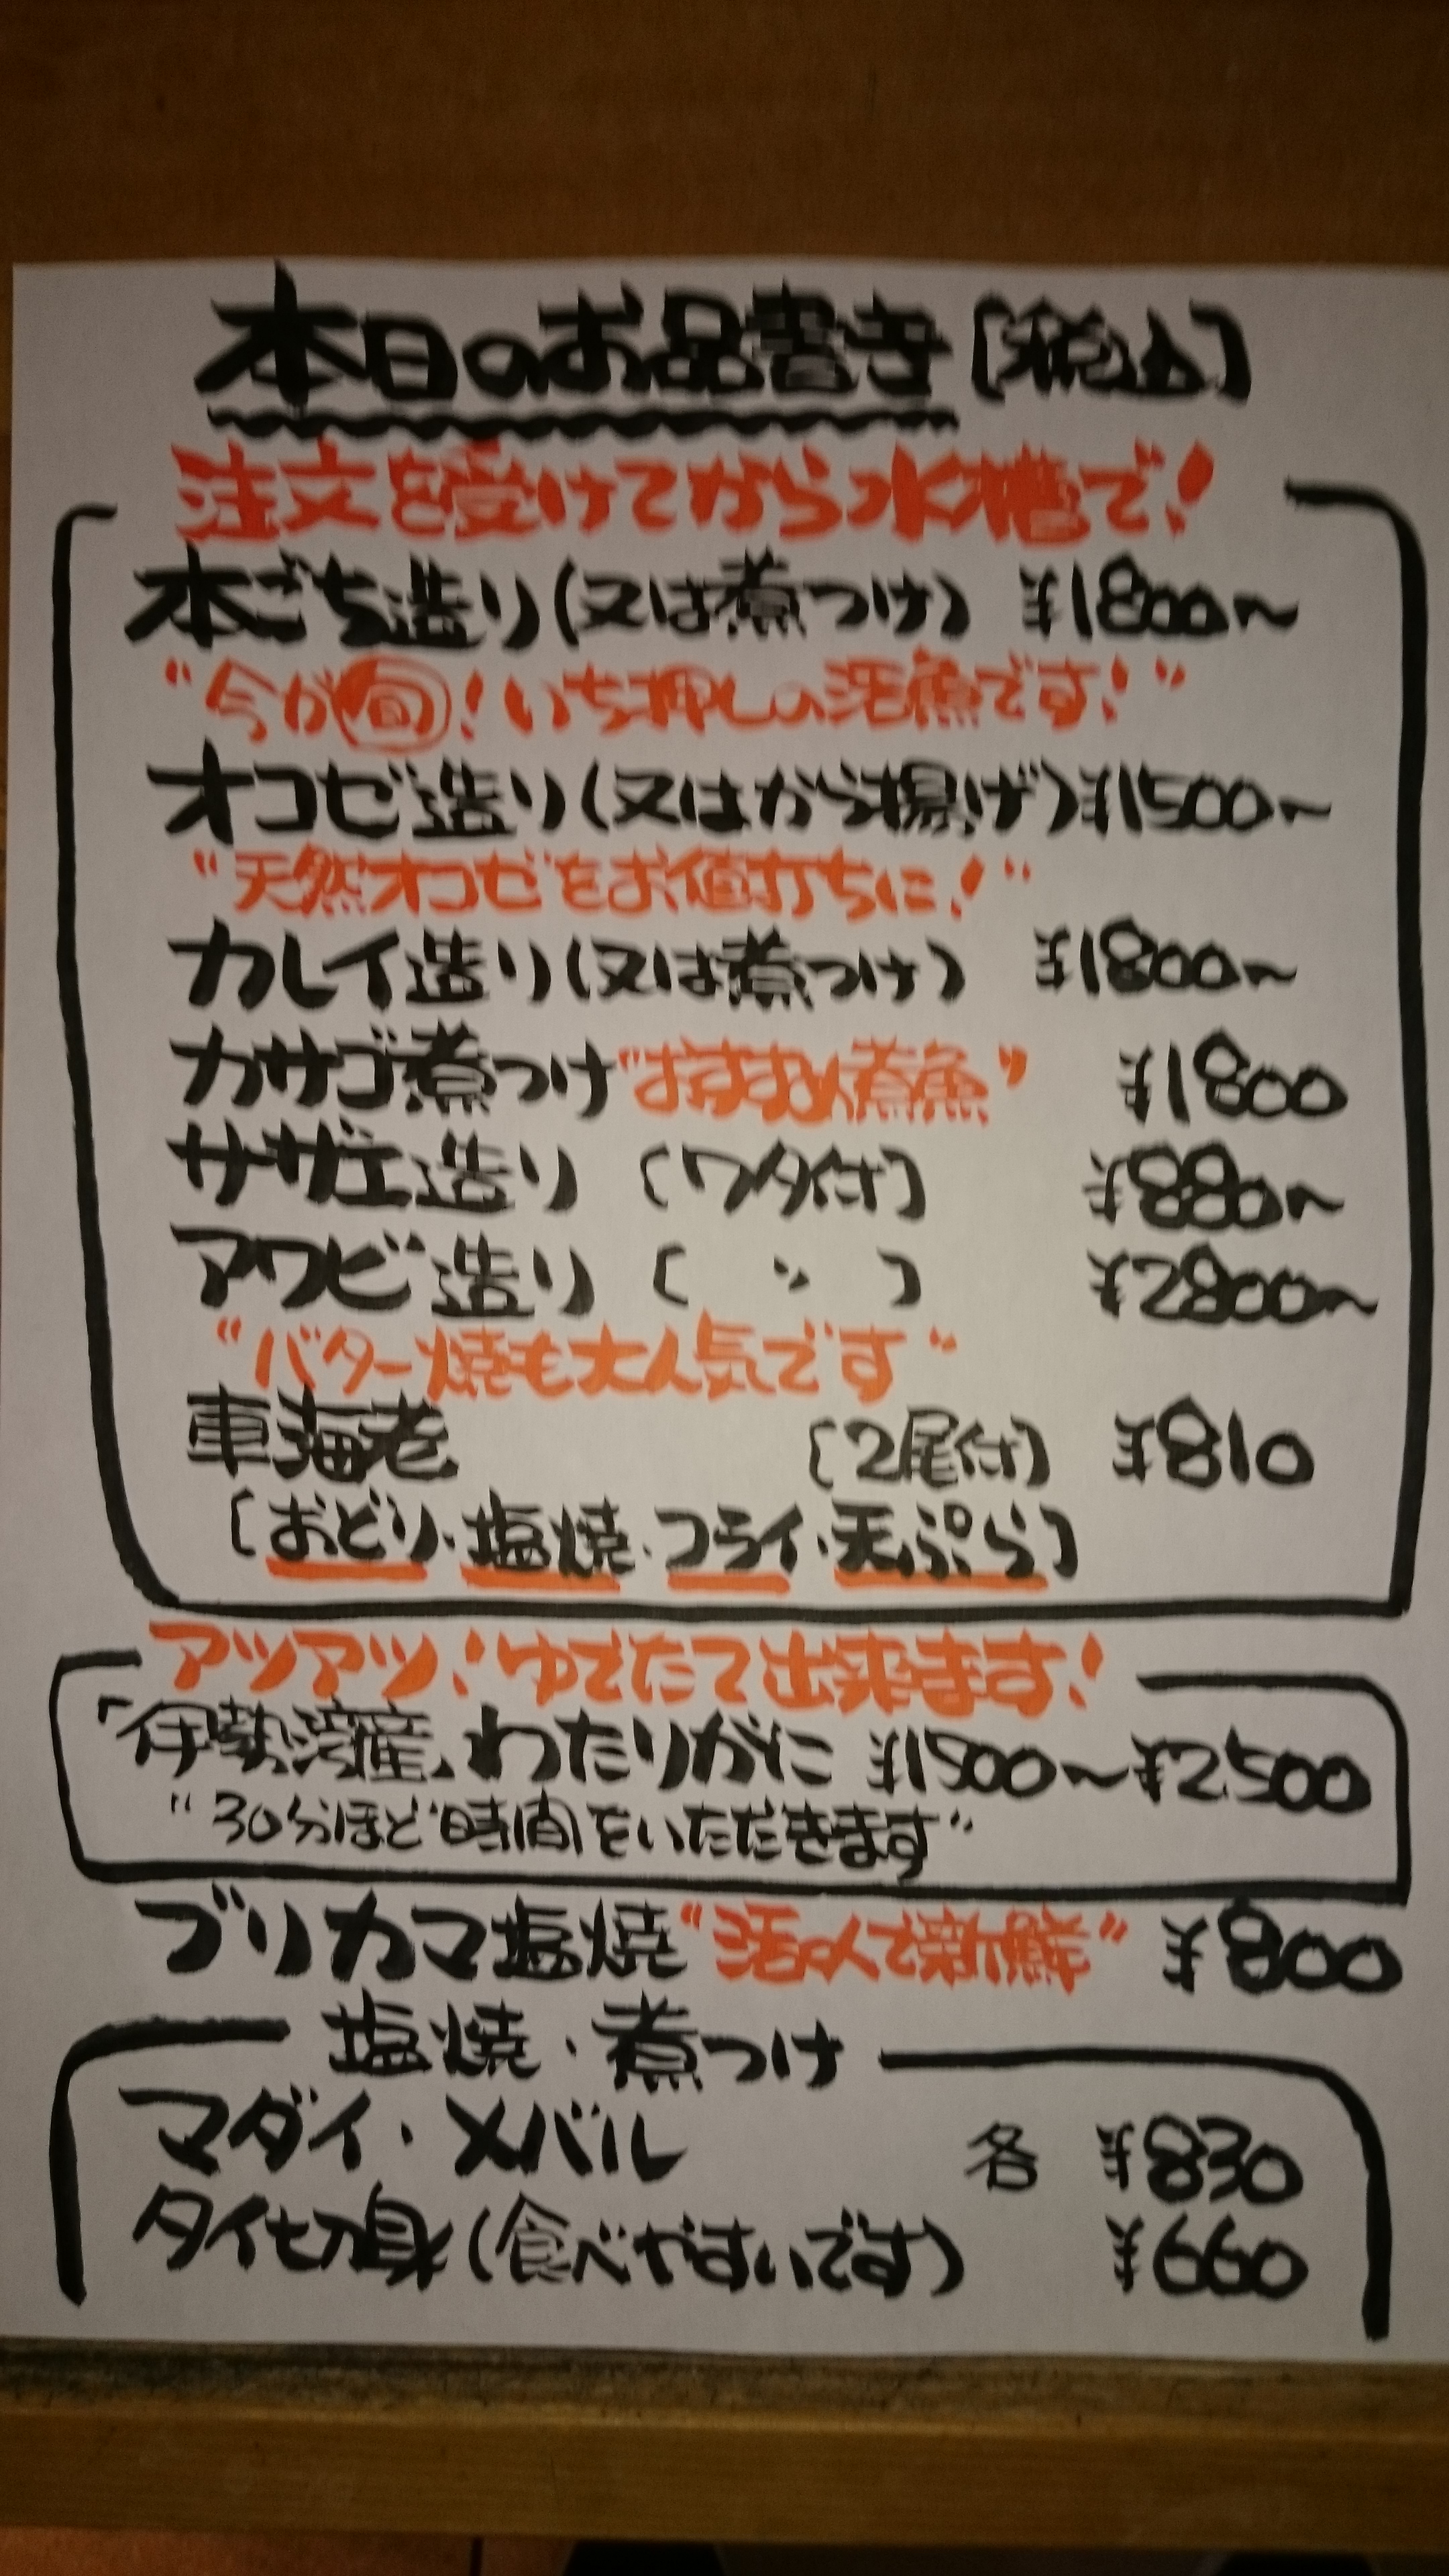 本日のお品書き〔税込〕
注文を受けてから水槽で!
本ごち造り(又は煮つけ) ¥1800〜
"今が旬!いち押しの活魚です!"
オコゼ造り(又はから揚げ)¥1500〜
"天然オコゼをお値打ちに!"
カレイ造り(又は煮つけ) ¥1800〜
カサゴ煮つけ"おすすめ煮魚" ¥1800
サザエ造り〔ワタ付〕 ¥880〜
アワビ造り〔 〃 〕 ¥2800〜
"バター焼も大人気です"
車海老 〔2尾付〕 ¥810
〔おどり・塩焼・フライ・天ぷら〕
アツアツ!ゆでたて出来ます!
「伊勢湾産」わたりがに ¥1500〜¥2,500
"30分ほど時間をいただきます"
ブリカマ塩焼"活〆で新鮮" ¥800
塩焼・煮つけ
マダイ・メバル 各 ¥830
タイ切身(食べやすいです) ¥660